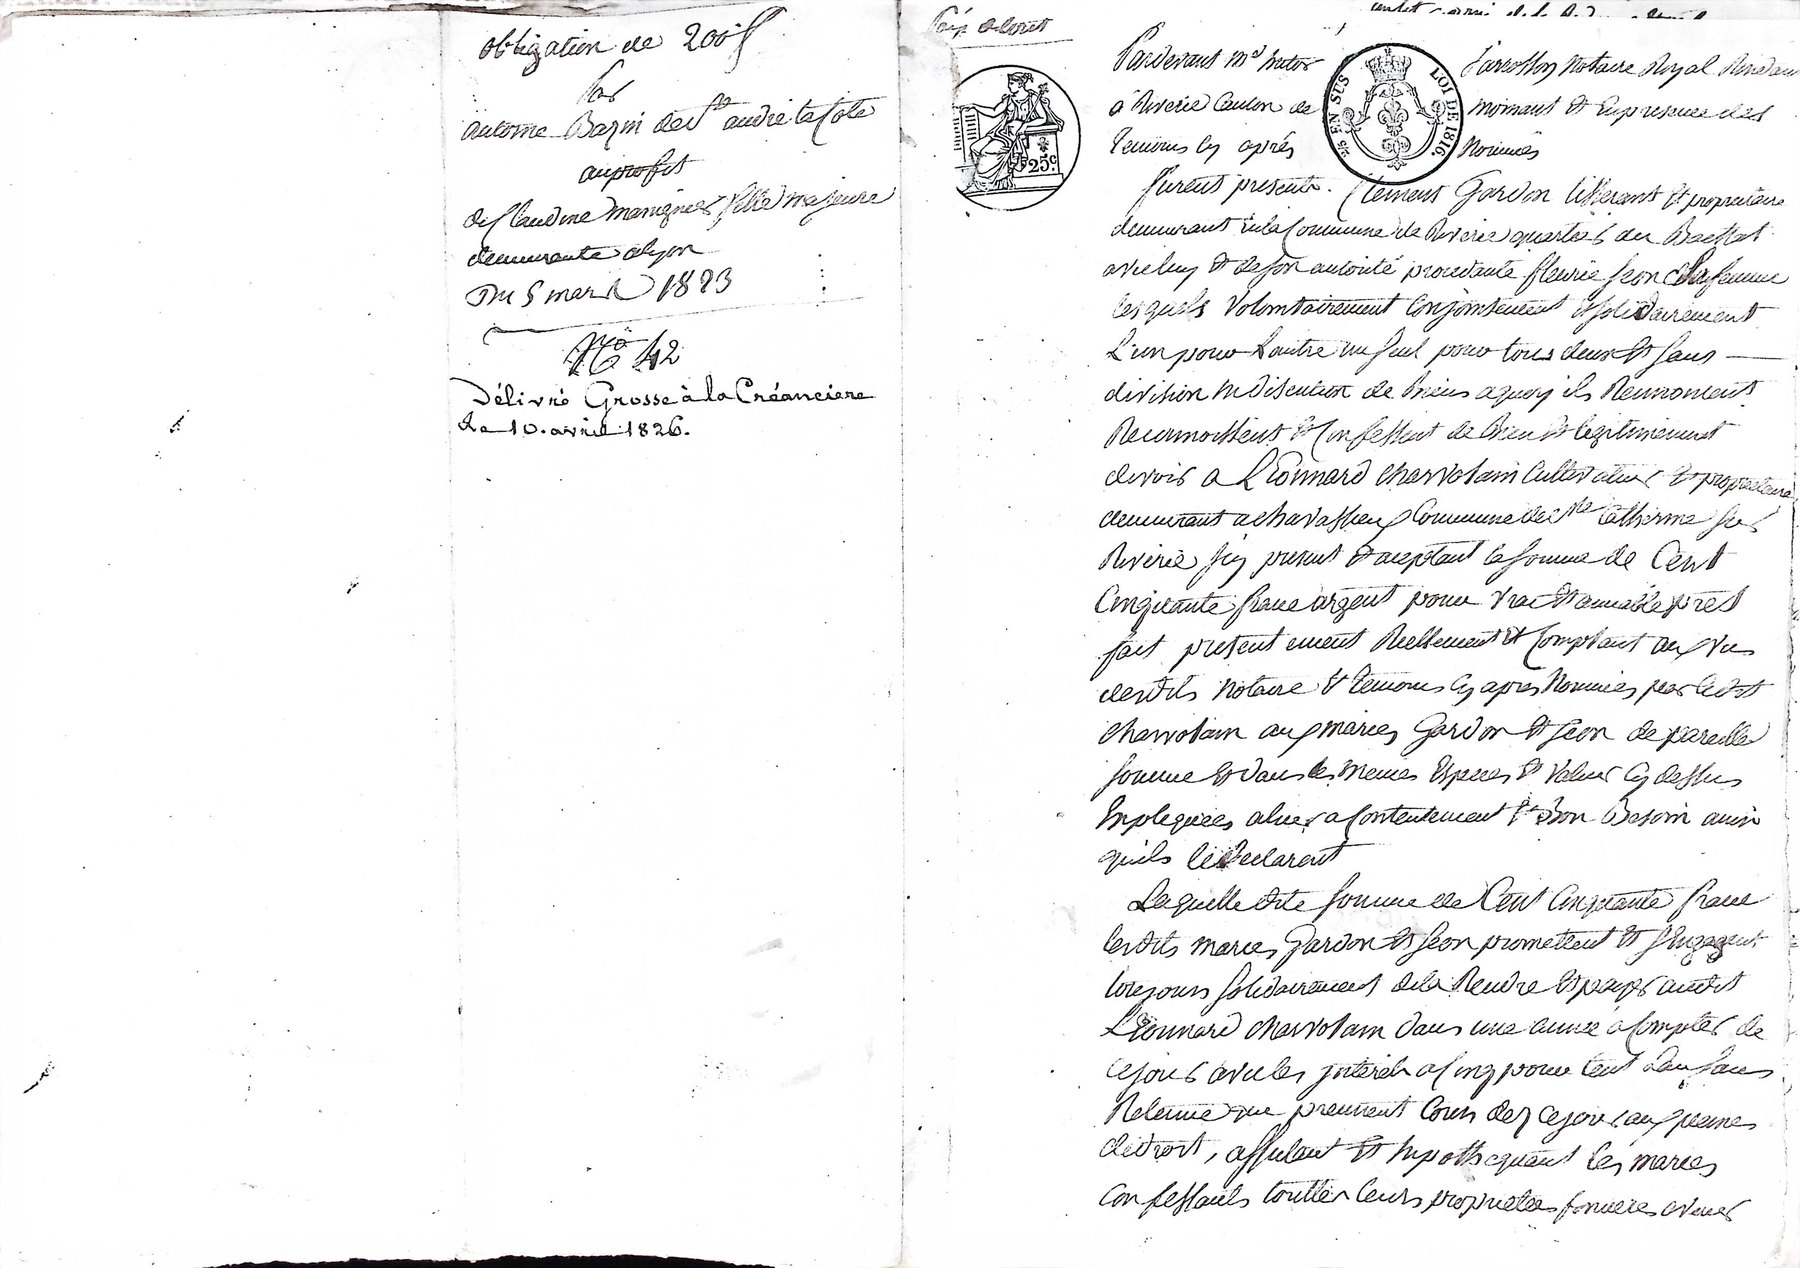 obligation de 200 f
Par
antoine Bazin de St andré la Cote
au profit
de Claudine manignier fille majeure
demeurante a lyon
Du 5 mars 1823
No 42
Délivré Grosse à la Créanciere
Le 10. avril 1826.
Pardevant Me
notaire Royal Residant
à Riverie Canton de
mornant Et En presence des
temoins Cy aprés
Nommés
25 EN SUS
LOI DE 1816
25c.
furent presents. Clement Gardon tisserant Et propriétaire
demeurant En la Commune de Riverie quartier du
avec luy Et de son autorité procedante fleurie Seon sa femme
lesquels Volontairement Conjointement Et solidairement
L'un pour L'autre un seul pour tous deux Et sans
division ni discution de Biens a quoy ils Renoncent
Reconnoissent Et Confessent de Bien Et légitimement
devoir a Léonnard charvolain Cultivateur Et propriétaire
demeurant a chavassieux Commune de Ste Catherine sur
Riverie Icy present Et aceptant la somme de Cent
Cinquante franc argent pour vrai Et amiable prest
fait presentement Reellement Et Comptant au vu
desdits Notaire Et temoins Cy apres Nommés par ledit
charvolain aux mariés Gardon Et Seon de pareille
somme Et dans les memes Especes Et valeur Cy dessus
Expliquées a leur Contentement Et Bon Besoin ainsi
quils le déclarent
Laquelle dite somme de Cent Cinquante franc
lesdits mariés Gardon Et Seon promettent Et s'engagent
toujours solidairement de la Rendre Et payer audit
Léonnard charvolain dans une année a Compter de
ce jour avec les interets a Cinq pour Cent L'an sans
Retenue qui prennent Cours dez ce jour aux peines
de droit, affectant Et hypothequant les mariés
Confessants touttes leurs proprietées foncieres avenir